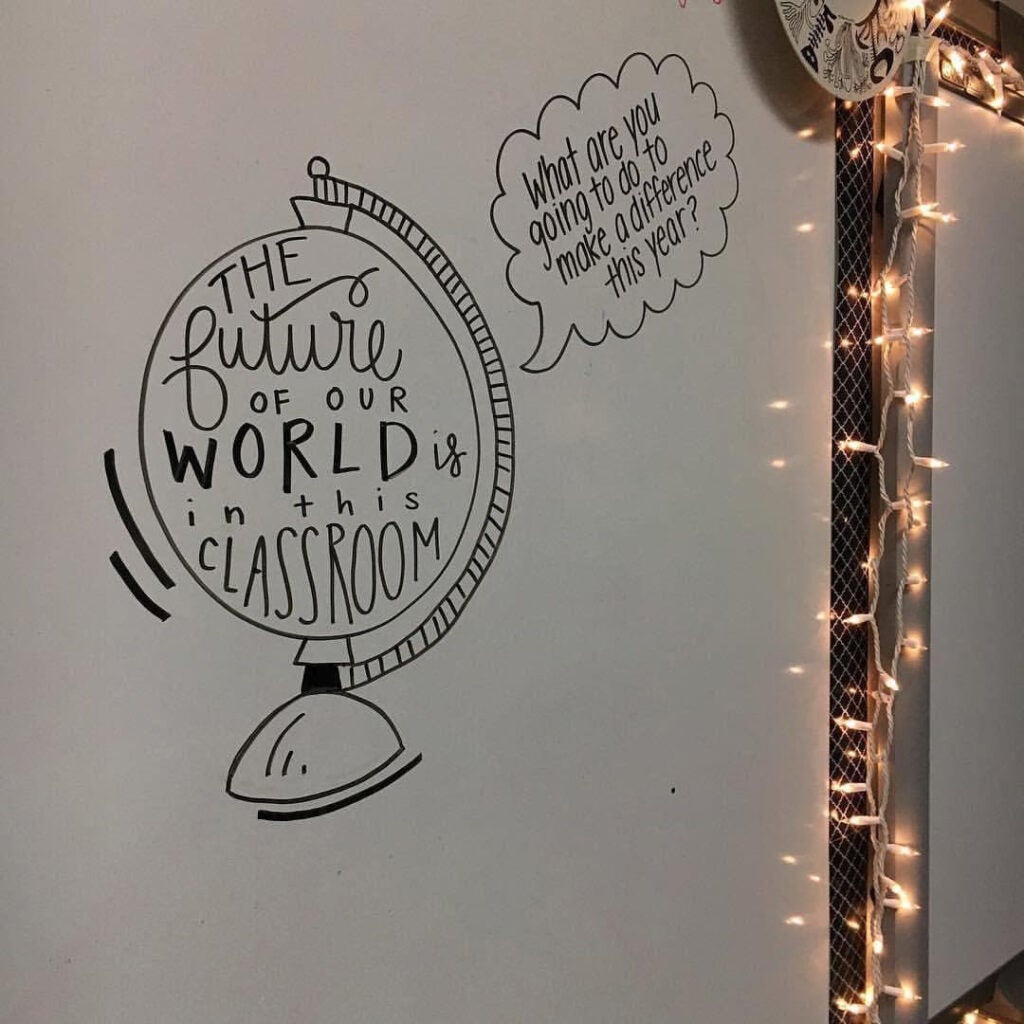 THE
future
OF OUR
WORLD is
in this
CLASSROOM
What are you
going to do to
make a difference
this year?